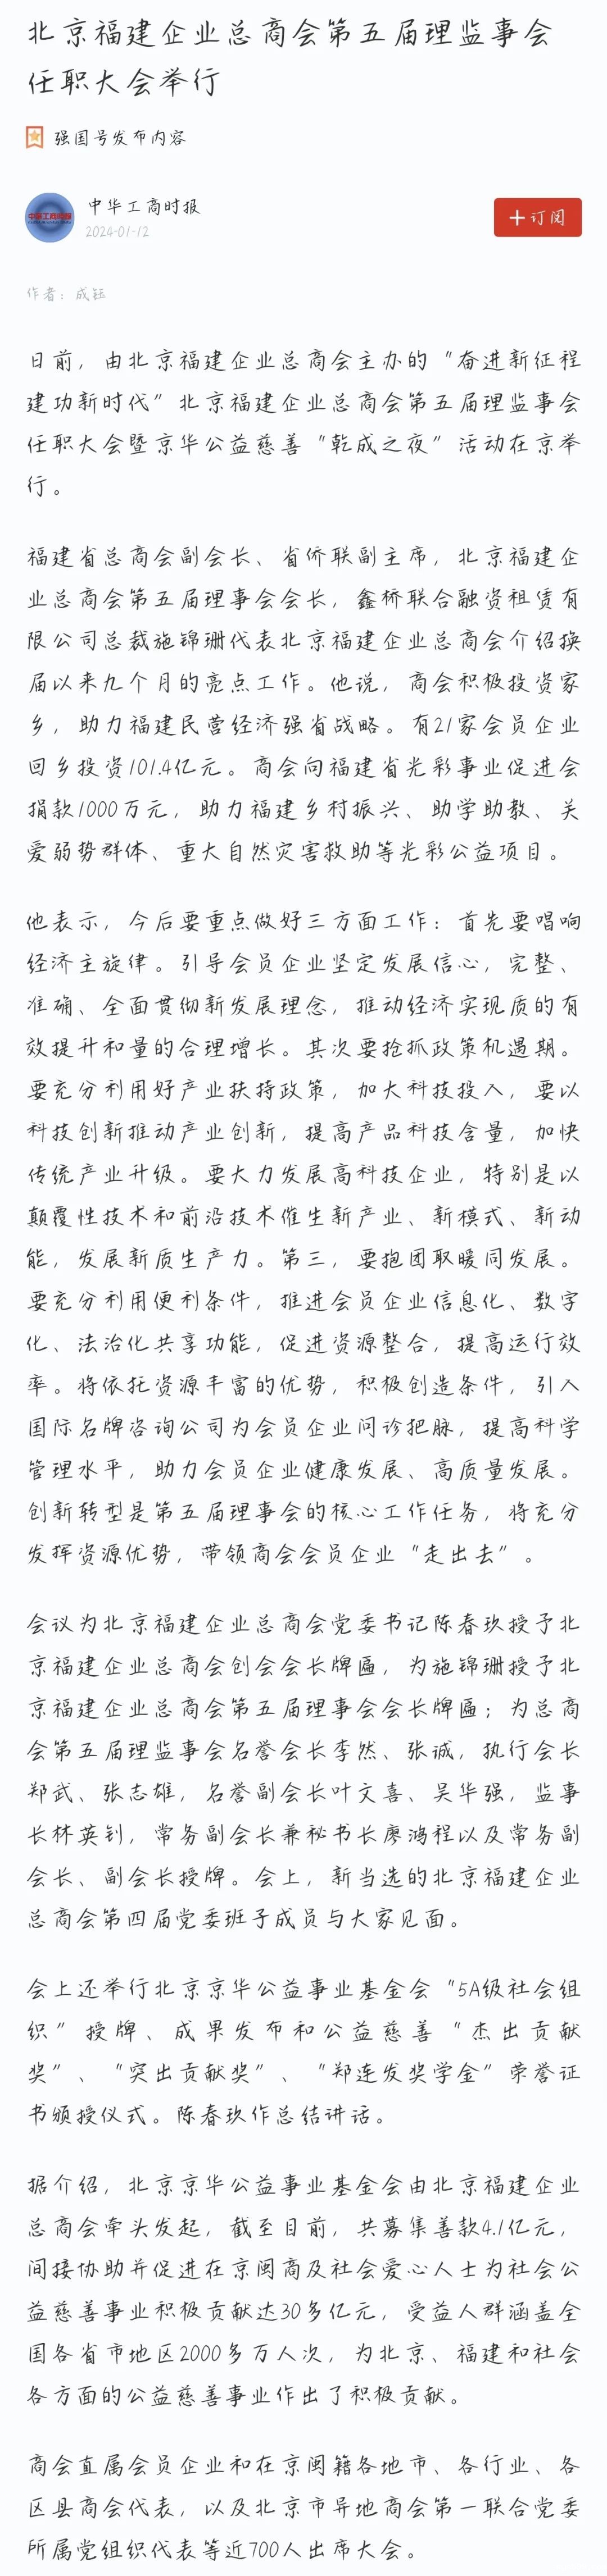 北京福建企业总商会第五届理监事会
任职大会举行
强国号发布内容
中华工商时报
2024-01-12
十订阅
作者：成钰
日前，由北京福建企业总商会主办的“奋进新征程
建功新时代”北京福建企业总商会第五届理监事会
任职大会暨京华公益慈善“乾成之夜”活动在京举
行。
福建省总商会副会长、省侨联副主席，北京福建企
业总商会第五届理事会会长，鑫桥联合融资租赁有
限公司总裁施锦珊代表北京福建企业总商会介绍换
届以来九个月的亮点工作。他说，商会积极投资家
乡，助力福建民营经济强省战略。有21家会员企业
回乡投资101.4亿元。商会向福建省光彩事业促进会
捐款1000万元，助力福建乡村振兴、助学助教、关
爱弱势群体、重大自然灾害救助等光彩公益项目。
他表示，今后要重点做好三方面工作：首先要唱响
经济主旋律。引导会员企业坚定发展信心，完整、
准确、全面贯彻新发展理念，推动经济实现质的有
效提升和量的合理增长。其次要抢抓政策机遇期。
要充分利用好产业扶持政策，加大科技投入，要以
科技创新推动产业创新，提高产品科技含量，加快
传统产业升级。要大力发展高科技企业，特别是以
颠覆性技术和前沿技术催生新产业、新模式、新动
能，发展新质生产力。第三，要抱团取暖同发展。
要充分利用便利条件，推进会员企业信息化、数字
化、法治化共享功能，促进资源整合，提高运行效
率。将依托资源丰富的优势，积极创造条件，引入
国际名牌咨询公司为会员企业问诊把脉，提高科学
管理水平，助力会员企业健康发展、高质量发展。
创新转型是第五届理事会的核心工作任务，将充分
发挥资源优势，带领商会会员企业“走出去”。
会议为北京福建企业总商会党委书记陈春玖授予北
京福建企业总商会创会会长牌匾，为施锦珊授予北
京福建企业总商会第五届理事会会长牌匾；为总商
会第五届理监事会名誉会长李然、张诚，执行会长
郑武、张志雄，名誉副会长叶文喜、吴华强，监事
长林英钊，常务副会长兼秘书长廖鸿程以及常务副
会长、副会长授牌。会上，新当选的北京福建企业
总商会第四届党委班子成员与大家见面。
会上还举行北京京华公益事业基金会“5A级社会组
织”授牌、成果发布和公益慈善“杰出贡献
奖”、“突出贡献奖”、“郑连发奖学金”荣誉证
书颁授仪式。陈春玖作总结讲话。
据介绍，北京京华公益事业基金会由北京福建企业
总商会牵头发起，截至目前，共募集善款4.1亿元，
间接协助并促进在京闽商及社会爱心人士为社会公
益慈善事业积极贡献达30多亿元，受益人群涵盖全
国各省市地区2000多万人次，为北京、福建和社会
各方面的公益慈善事业作出了积极贡献。
商会直属会员企业和在京闽籍各地市、各行业、各
区县商会代表，以及北京市异地商会第一联合党委
所属党组织代表等近700人出席大会。